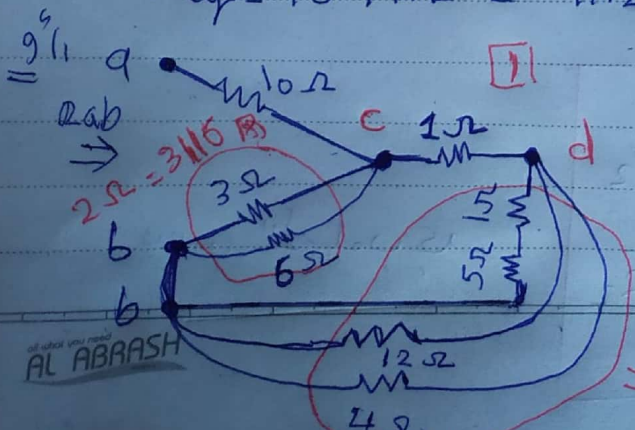 a
10 Ω
1
c
1Ω
d
2Ω = 3//6
3 Ω
6 Ω
b
15
5Ω
b
12 Ω
4 Ω
all what you need
AL ABRASH